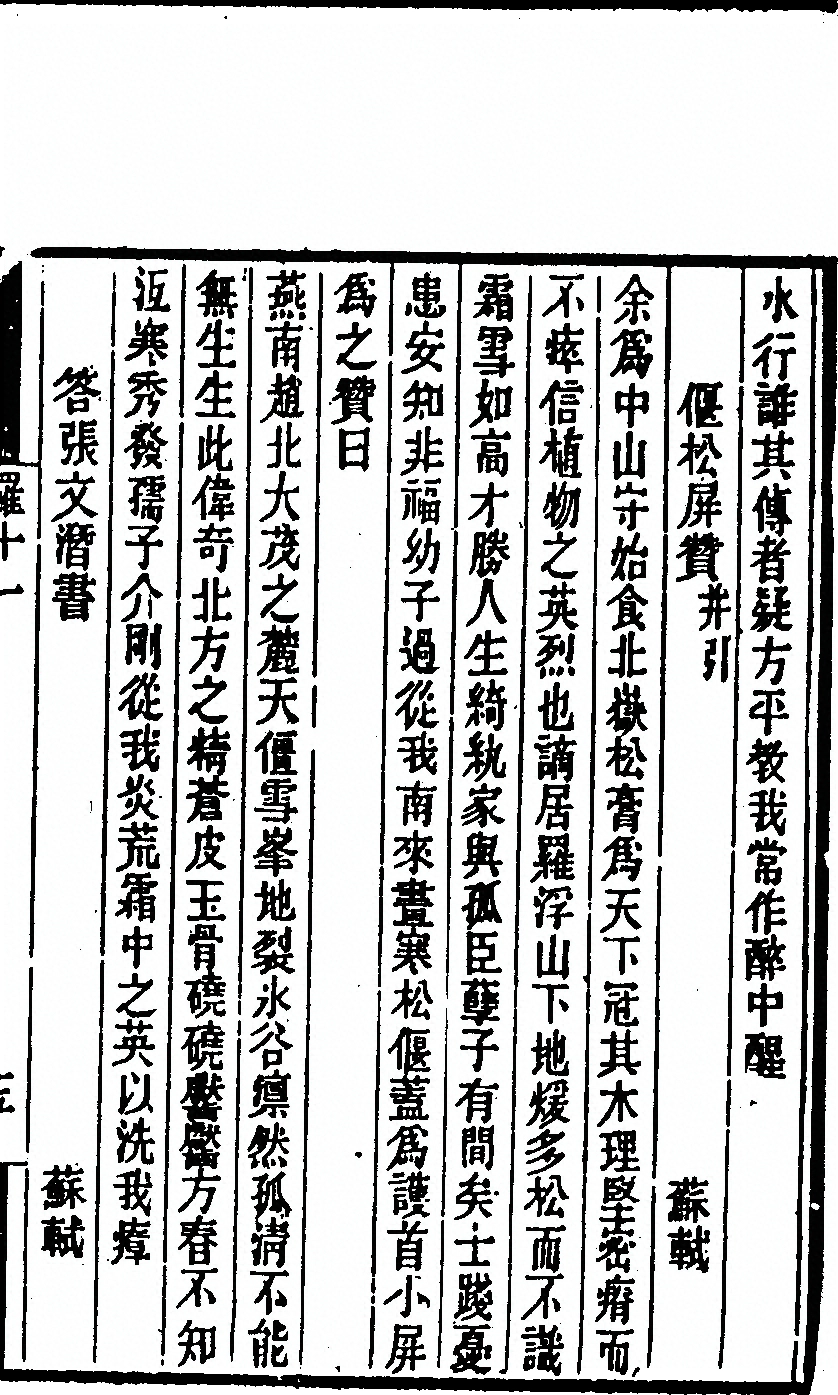 水行誰其傳者疑方平教我常作醉中醒
偃松屏贊并引 蘇軾
余爲中山守始食北嶽松膏爲天下冠其木理堅密瘠而
不瘁信植物之英烈也謫居羅浮山下地煖多松而不識
霜雪如高才勝人生綺紈家與孤臣孽子有間矣士踐憂
患安知非福幼子過從我南來畫寒松偃蓋爲護首小屏
爲之贊曰
燕南趙北大茂之麓天僵雪峯地裂氷谷凛然孤淸不能
無生生此偉奇北方之精蒼皮玉骨磽磽方春不知
沍寒秀發孺子介剛從我炎荒霜中之英以洗我瘴
答張文潛書 蘇軾
羅十一